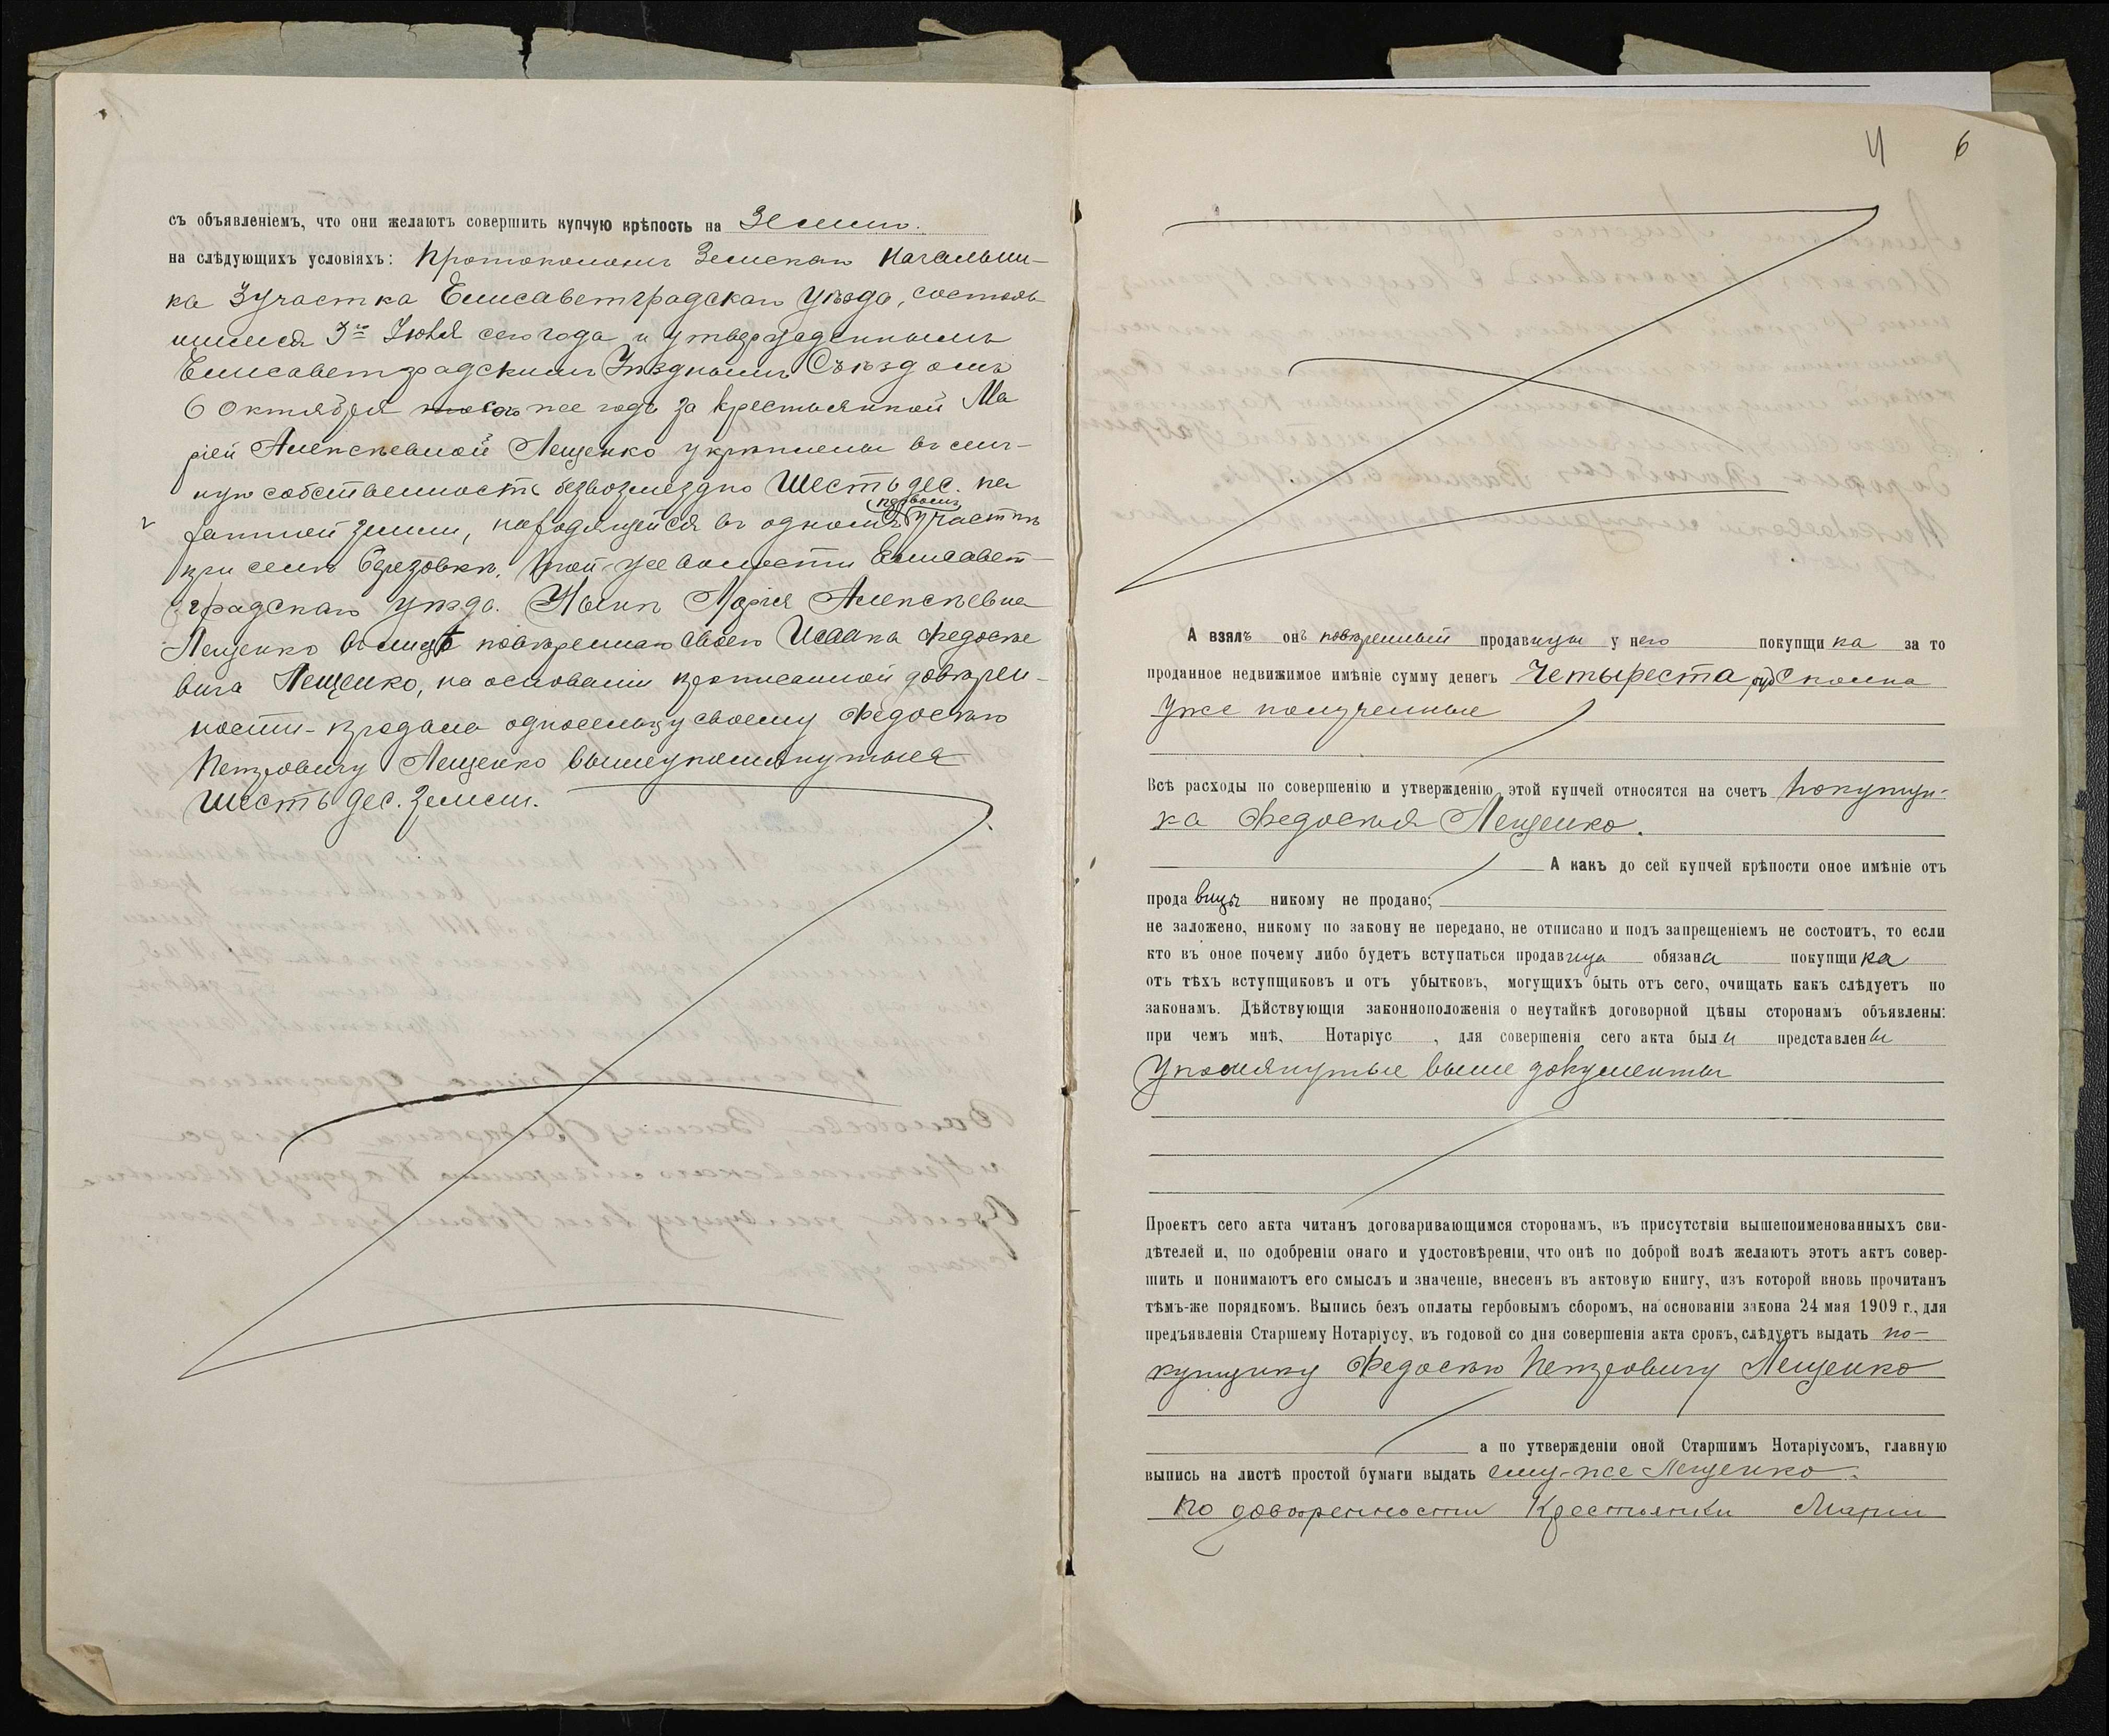 съ объявленіемъ, что они желаютъ совершить купчую крѣпость на Землю.
на слѣдующихъ условіяхъ: Протоколомъ Земскаго Начальни-
ка 3 участка Елисаветградскаго уѣзда, состояв
шимся 3го Іюля сего года и утвержденнымъ
Елисаветградскимъ Уѣзднымъ Съѣздомъ
6 Октября сего же года за крестьянкой Ма
ріей Алексѣевной Лещенко укрѣплены въ лич-
ную собственность безвозмездно Шесть дес. па
хатной земли, находящейся въ одномъ участкѣ
при селѣ Березовкѣ, той-же волости Елисавет-
градскаго уѣзда. Нынѣ Марія Алексѣевна
Лещенко въ лицѣ повѣреннаго своего Исаака Федосѣе
вича Лещенко, на основаніи прописанной довѣрен-
ности - продала односельцу своему Федосѣю
Петровичу Лещенко вышеупомянутыя
шесть дес. земли.
4 6
А взялъ онъ повѣренный продавицы у него покупщика за то
проданное недвижимое имѣніе сумму денегъ Четыреста руб сполна
уже полученные
Всѣ расходы по совершенію и утвержденію этой купчей относятся на счетъ покупщи-
ка Федосѣя Лещенко.
А какъ до сей купчей крѣпости оное имѣніе отъ
продавицы никому не продано;
не заложено, никому по закону не передано, не отписано и подъ запрещеніемъ не состоитъ, то если
кто въ оное почему либо будетъ вступаться продавица обязана покупщика
отъ тѣхъ вступщиковъ и отъ убытковъ, могущихъ быть отъ сего, очищать какъ слѣдуетъ по
законамъ. Дѣйствующія законноположенія о неутайкѣ договорной цѣны сторонамъ объявлены:
при чемъ мнѣ, Нотаріус , для совершенія сего акта были представлены
упомянутые выше документы
Проектъ сего акта читанъ договаривающимся сторонамъ, въ присутствіи вышепоименованныхъ сви-
дѣтелей и, по одобреніи онаго и удостовѣреніи, что онѣ по доброй волѣ желаютъ этотъ актъ совер-
шить и понимаютъ его смыслъ и значеніе, внесенъ въ актовую книгу, изъ которой вновь прочитанъ
тѣмъ-же порядкомъ. Выпись безъ оплаты гербовымъ сборомъ, на основаніи закона 24 мая 1909 г., для
предъявленія Старшему Нотаріусу, въ годовой со дня совершенія акта срокъ, слѣдуетъ выдать по-
купщику Федосѣю Петровичу Лещенко
а по утвержденіи оной Старшимъ Нотаріусомъ, главную
выпись на листѣ простой бумаги выдать ему-же Лещенко.
По довѣренности Крестьянки Маріи